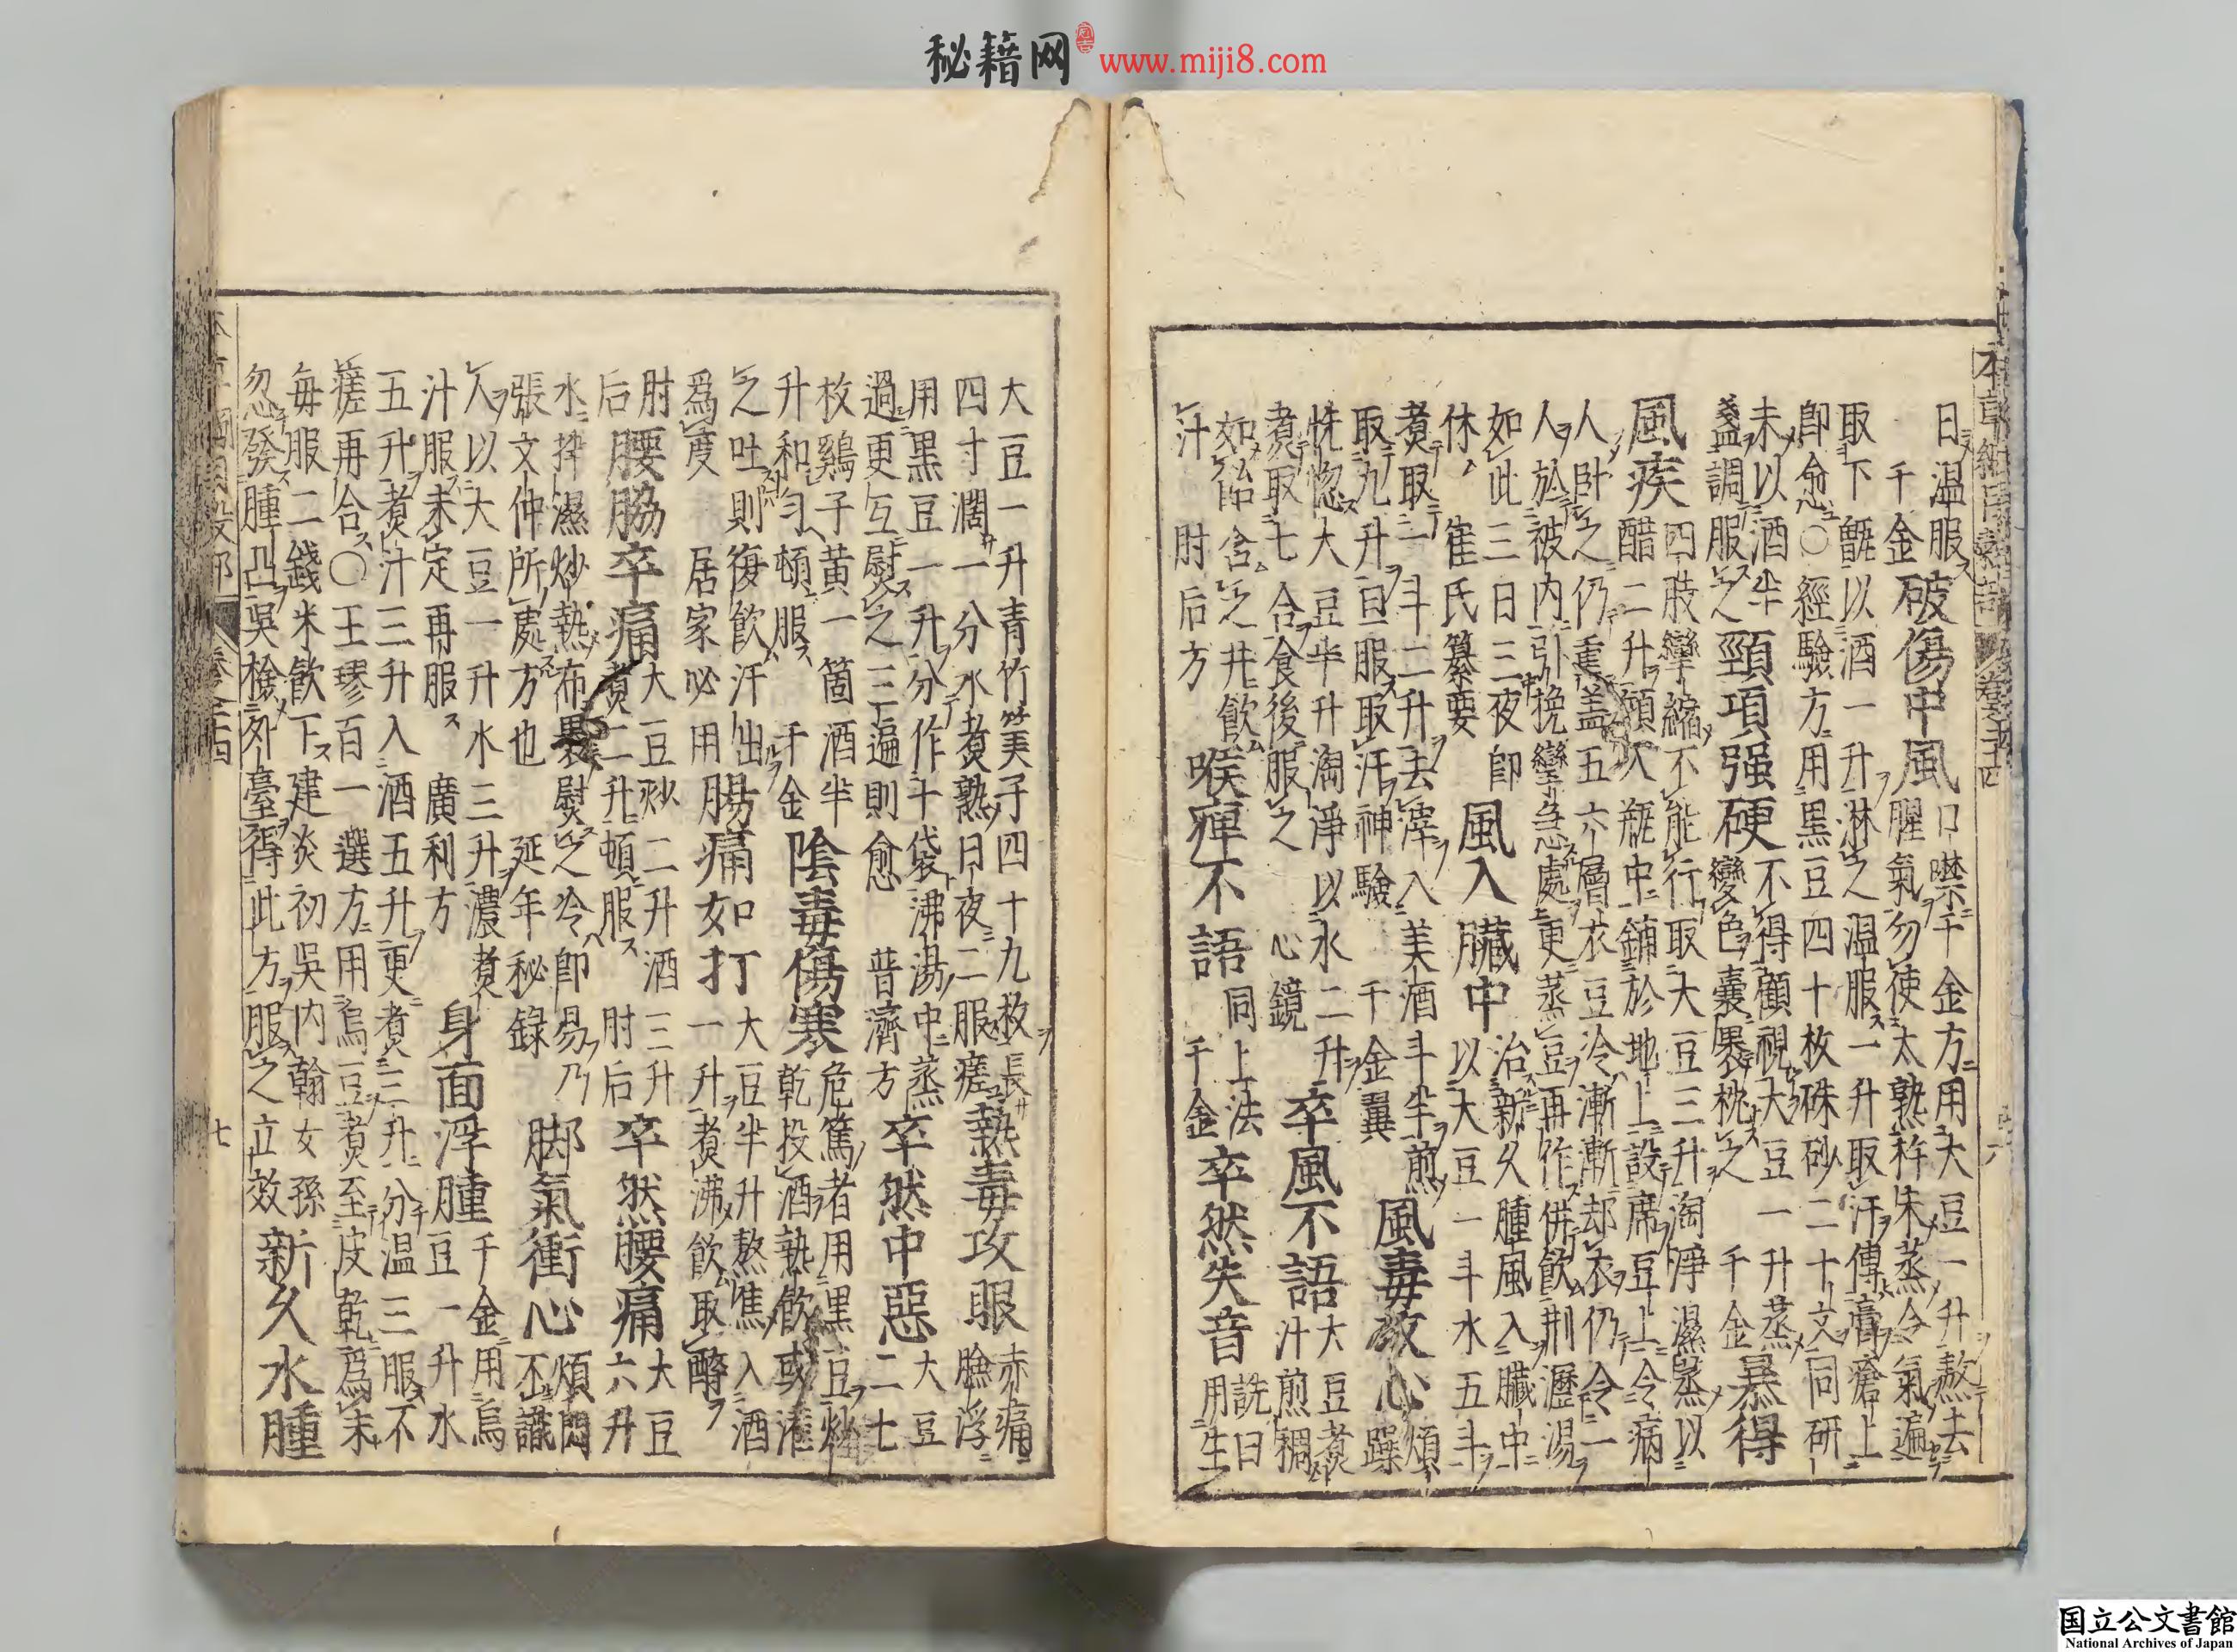 秘籍网 www.miji8.com
本草綱目穀部 卷二十四 六
日温服
千金
破傷中風
口噤千金方用大豆一升熬去
腥氣勿使太熟杵末蒸令氣遍
取下甑以酒一升淋之温服一升取汗傅膏瘡上
即愈○經驗方用黑豆四十枚硃砂二十文同研
末以酒半
盞調服之
頸項强硬
不得顧視大豆一升蒸
變色囊裹枕之 千金
暴得
風疾
四肢攣縮不能行取大豆三升淘淨濕蒸以
醋二升傾入瓶中鋪於地上設席豆上令病
人卧之仍重盖五六層衣豆冷漸漸却衣仍令一
人於被内引挽攣急處更蒸豆再作併飲荆瀝湯
如此三日三夜即
休 崔氏纂要
風入臟中
治新久腫風入臟中
以大豆一斗水五斗
煑取一斗二升去滓入美酒斗半煎
取九升旦服取汗神驗 千金翼
風毒攻心
煩
躁
恍惚大豆半升淘淨以水二升
煑取七合食後服之 心鏡
卒風不語
大豆煑
汁煎稠
如飴含之并飲
汁 肘后方
喉痺不語
同上法
千金
卒然失音
詵曰
用生
大豆一升青竹筭子四十九枚長
四寸濶一分水煑熟日夜二服瘥
熱毒攻眼
赤痛
臉浮
用黑豆一升分作十袋沸湯中蒸
過更互熨之三遍則愈 普濟方
卒然中惡
大豆
二七
枚鷄子黄一箇酒半
升和匀頓服 千金
陰毒傷寒
危篤者用黑豆炒
乾投酒熱飲或灌
之吐則復飲汗出
爲度 居家必用
腸痛如打
大豆半升熬焦入酒
一升煑沸飲取醉
肘
后
腰脇卒痛
大豆炒二升酒三升
煑二升頓服 肘后
卒然腰痛
大豆
六升
水拌濕炒熱布裹熨之冷即易乃
張文仲所處方也 延年秘錄
脚氣衝心
煩悶
不識
人以大豆一升水三升濃煑
汁服未定再服 廣利方
身面浮腫
千金用烏
豆一升水
五升煑汁三升入酒五升更煑三升分温三服不
瘥再合○王璆百一選方用烏豆煑至皮乾爲末
每服二錢米飲下建炎初吳内翰女孫
忽發腫凸吳檢外臺得此方服之立效
新久水腫
七
国立公文書館
National Archives of Japan